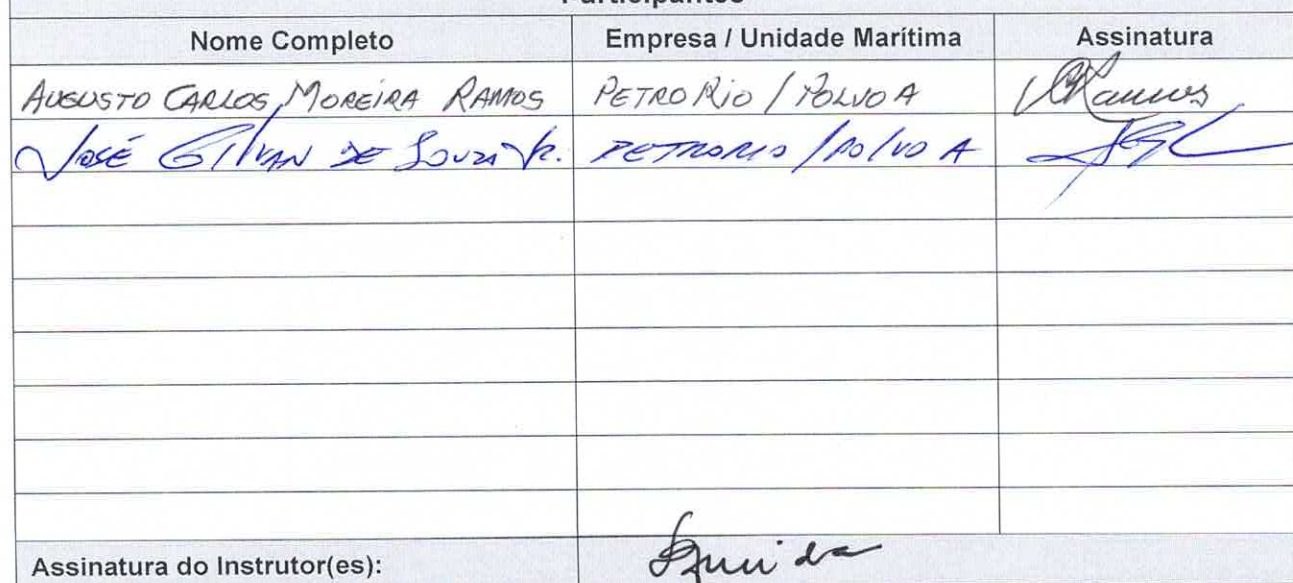 Participantes
Nome Completo Empresa / Unidade Marítima Assinatura
AUGUSTO CARLOS MOREIRA RAMOS PETRORIO / POLVO A Ramos
JOSÉ GILVAN DE SOUZA JR. PETRORIO / POLVO A
Assinatura do Instrutor(es):